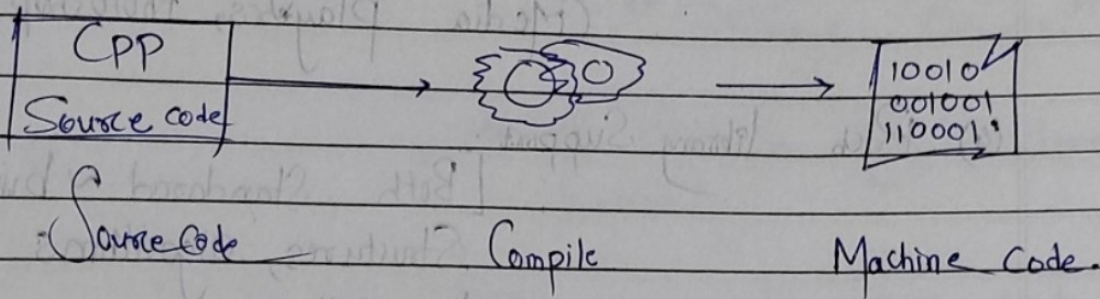 CPP
Source code
10010
001001
110001
Source code
Compile
Machine Code.